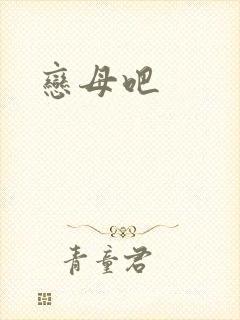 戀母吧
青童君